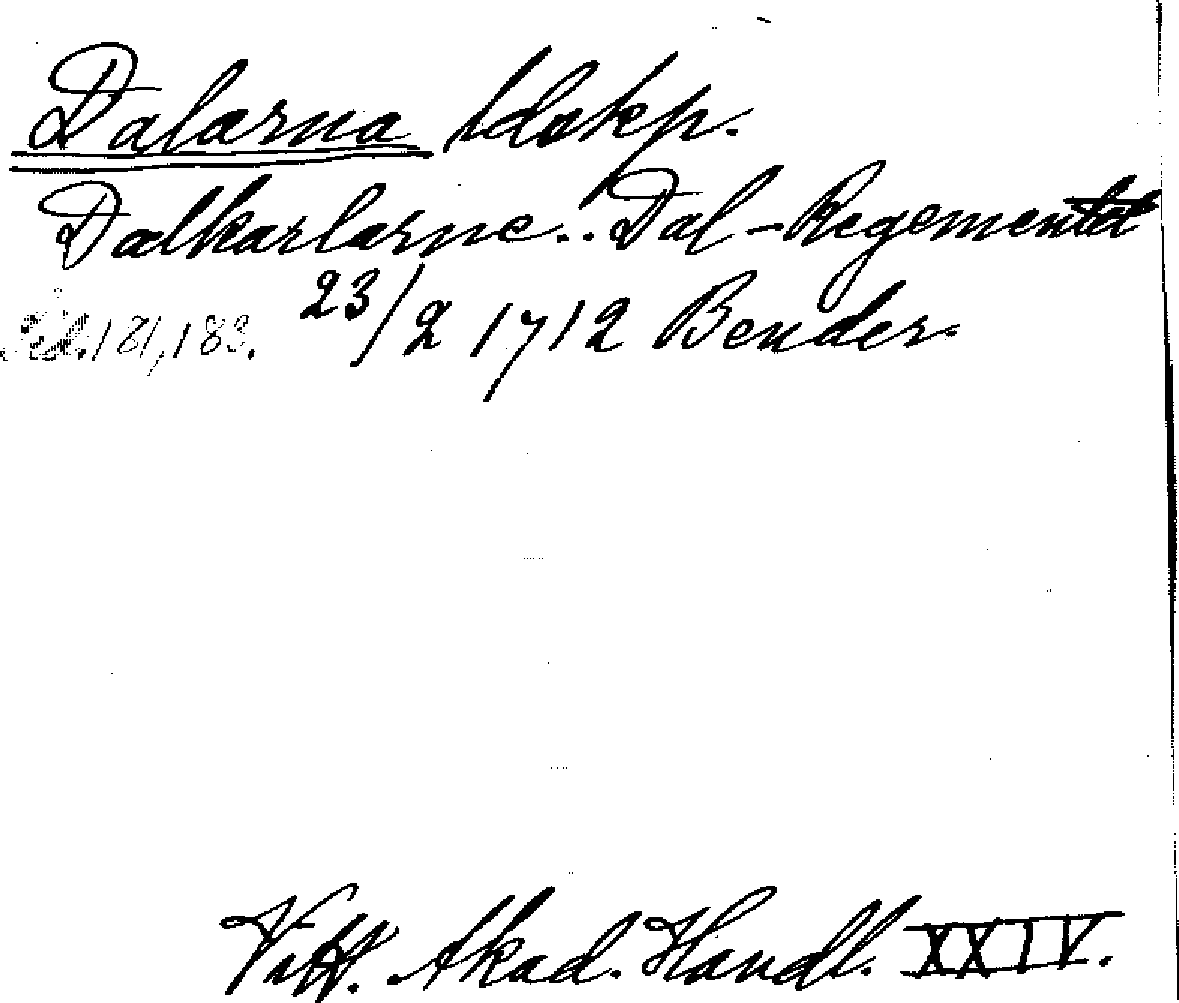 Dalarna ldskp.
Dalkarlarne.. Dal-Regementet
Sid. 181, 183. 23/2 1712 Bender.
Vitt. Akad. Handl. XXIV.